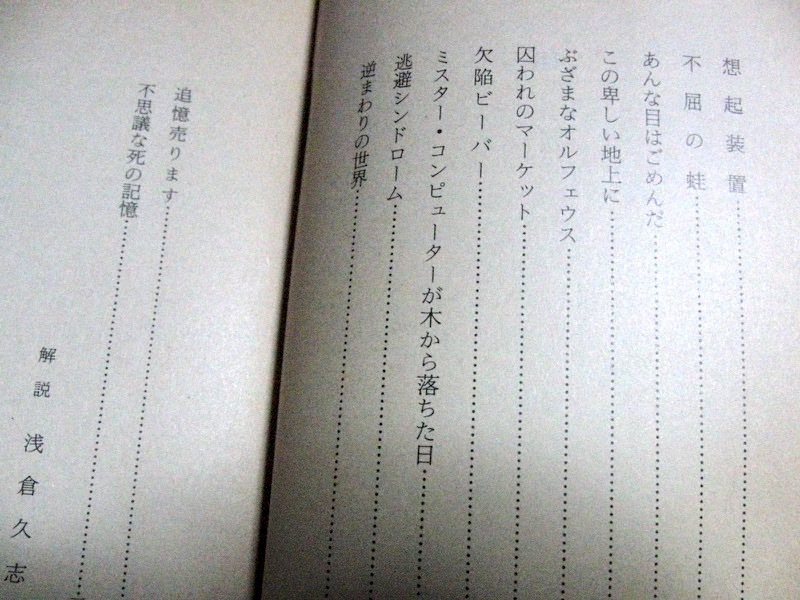 想起装置
不屈の蛙
あんな目はごめんだ
この卑しい地上に
ぶざまなオルフェウス
囚われのマーケット
欠陥ビーバー
ミスター・コンピューターが木から落ちた日
逃避シンドローム
逆まわりの世界
追憶売ります
不思議な死の記憶
解説 浅倉久志